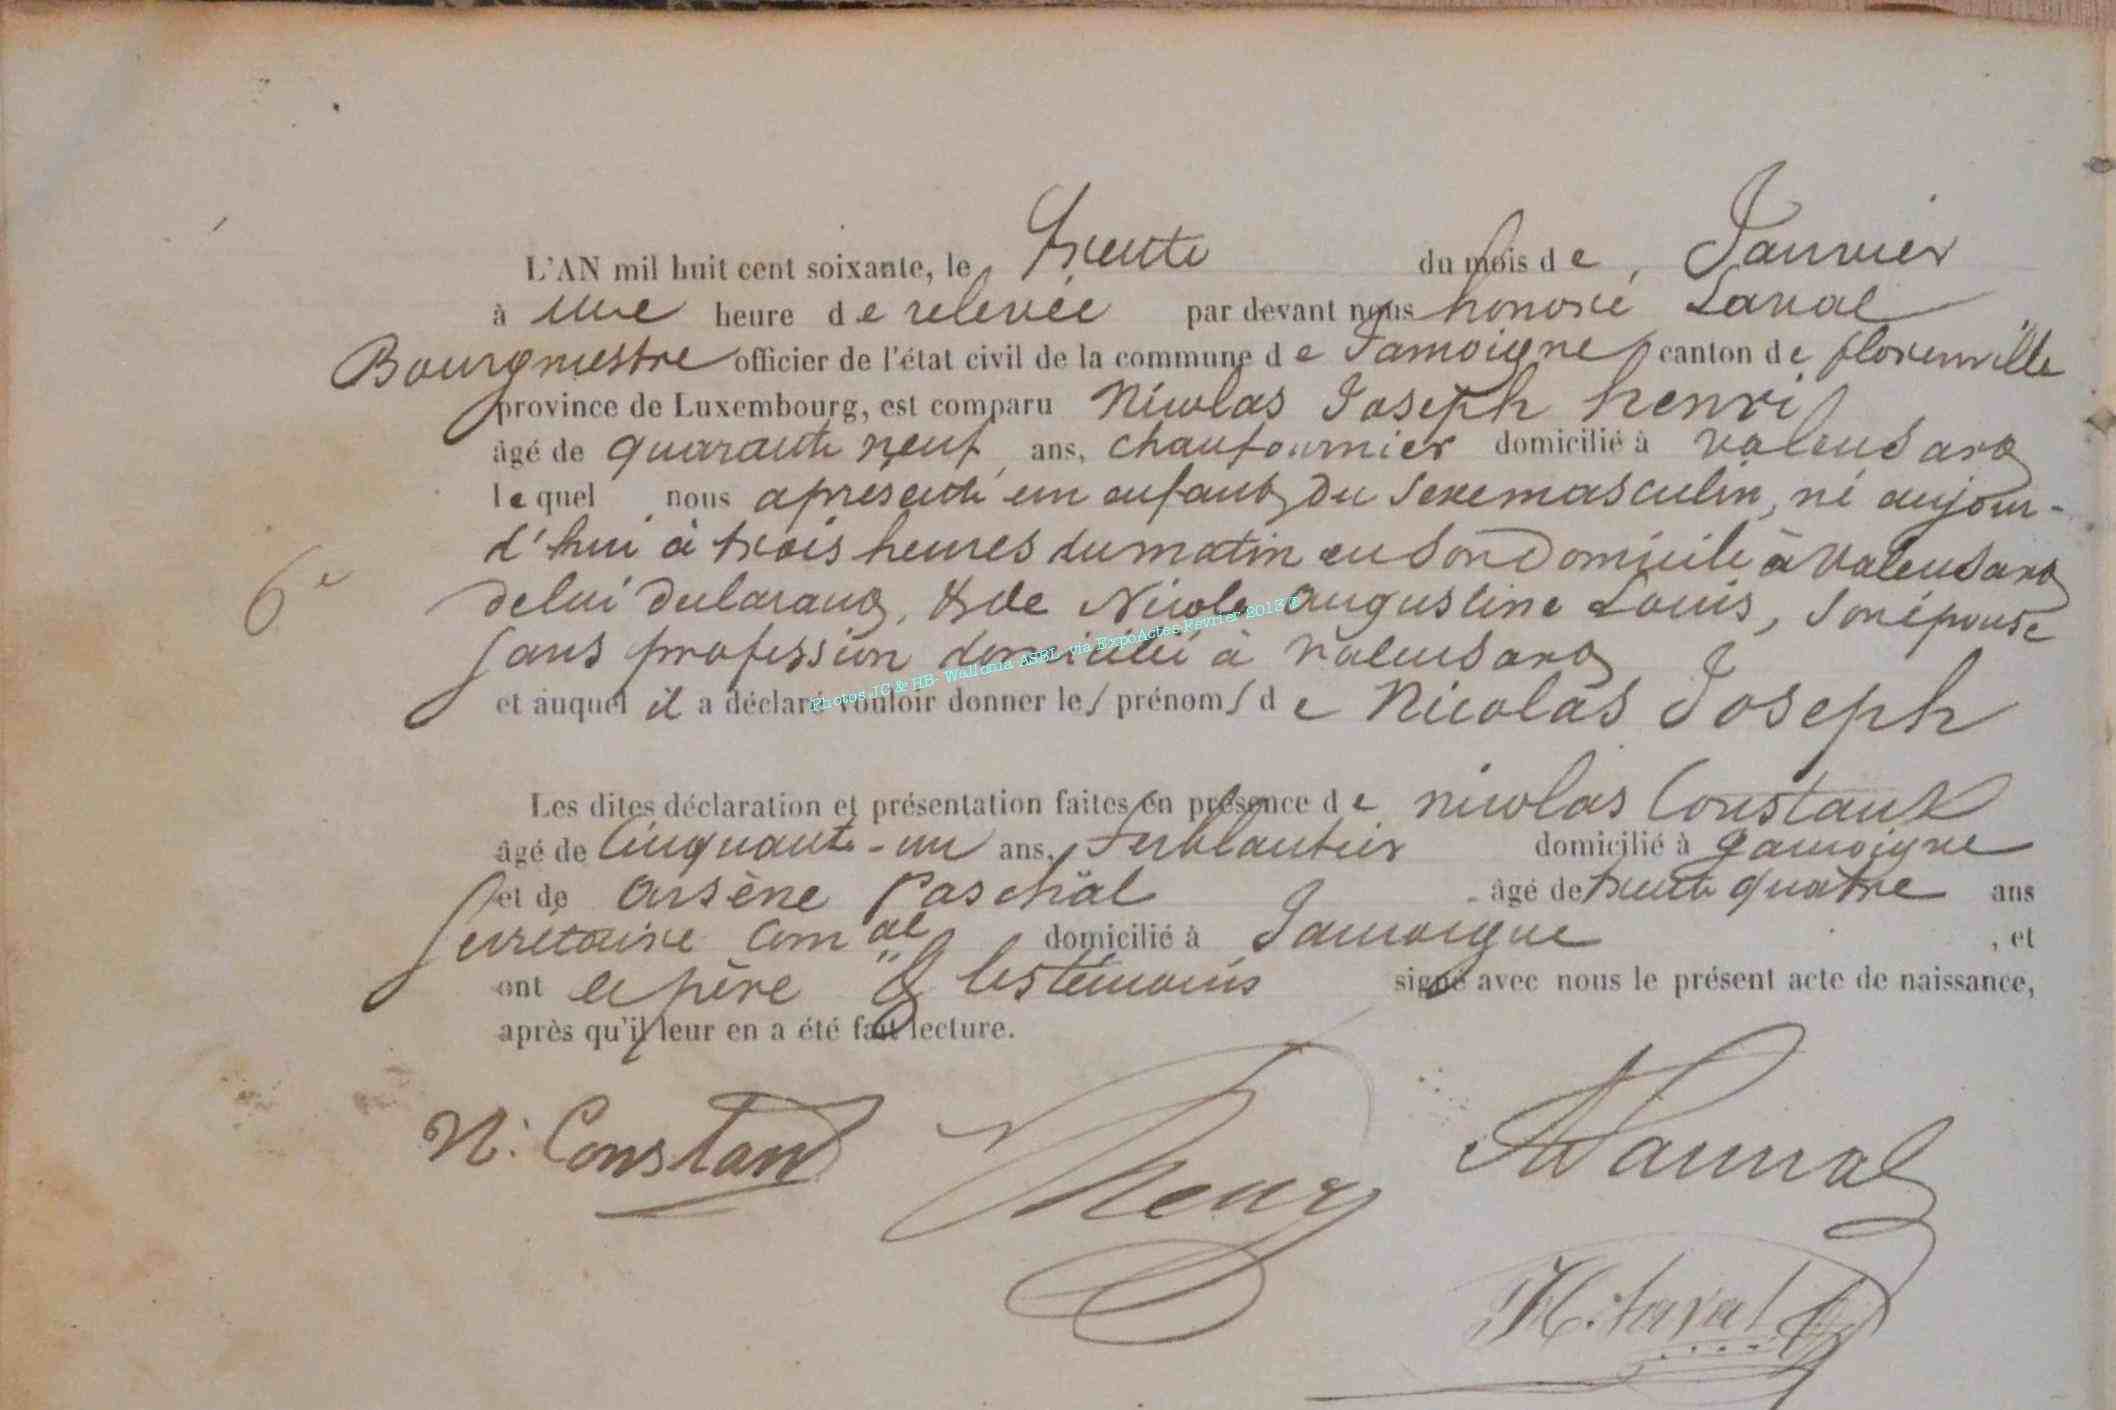 L'AN mil huit cent soixante, le trente du mois de Janvier
à une heure de relevée par devant nous honoré Laval
Bourgmestre officier de l'état civil de la commune de Jamoigne, canton de florenville
province de Luxembourg, est comparu Nicolas Joseph henri
âgé de quarante neuf ans, chaufournier domicilié à valensard
lequel nous a présenté un enfant du sexe masculin, né aujour-
d'hui à trois heures du matin en son domicile à valensard
6e de lui déclarant, & de Nicole augustine Louis, son épouse
sans profession domicilié à valensard
et auquel il a déclaré vouloir donner les prénoms de Nicolas Joseph
Photos JC & HB- Wallonia ASBL via ExpoActes Février 2013
Les dites déclaration et présentation faites en présence de nicolas Constant
âgé de Cinquante-un ans, ferblantier domicilié à Jamoigne
et de Arsène Paschäl âgé de trente quatre ans
Secrétaire Com al domicilié à Jamoigne , et
ont le père & les témoins signé avec nous le présent acte de naissance,
après qu'il leur en a été fait lecture.
N: Constant Henry
H. Laval